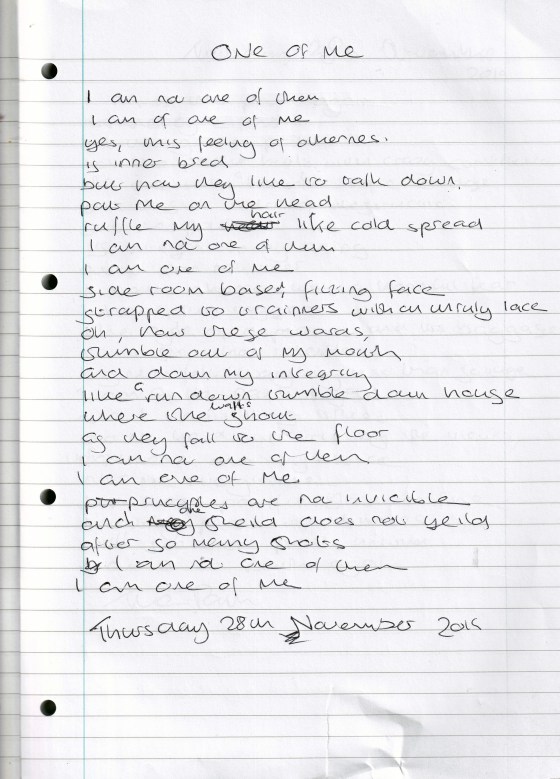 ONE OF ME
I am not one of them
I am of one of me
yes, this feeling of othernes.
is inner bred
but how they like to talk down,
pat me on the head
ruffle my hair like cold spread
I am not one of them
I am one of me
side room based, fitting face
strapped to trainers with an unruly lace
oh, how these words,
tumble out of my mouth
and down my integrity
like a run down tumble down house
where the walls shout
as they fall to the floor
I am not one of them
I am one of me
principles are not invicible
and the sheild does not yeild
after so many shots
I am not one of them
I am one of me
Thursday 28th November 2019